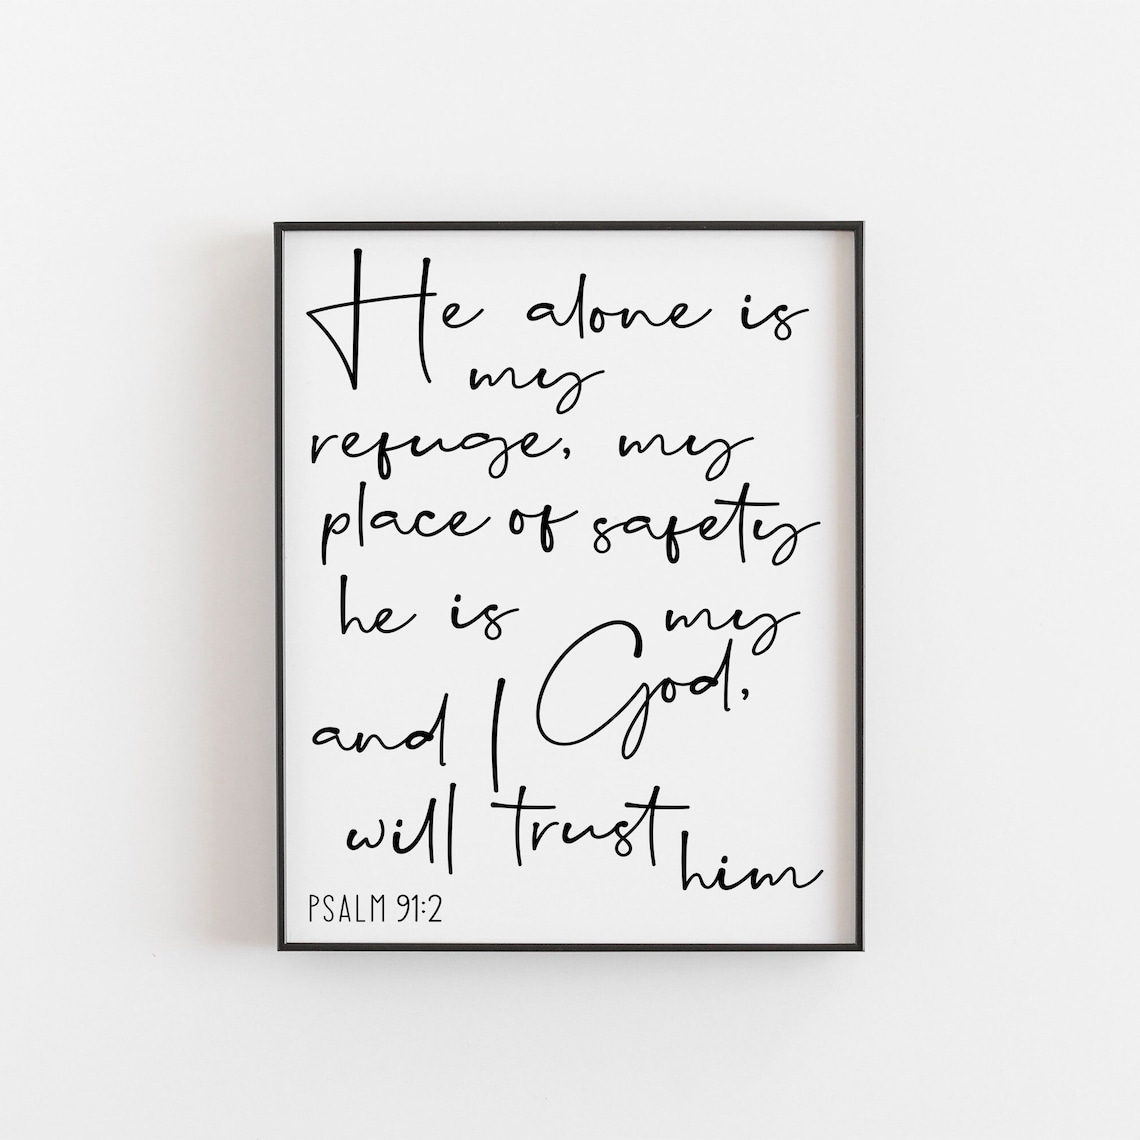 He alone is
my
refuge, my
place of safety
he is my
God,
and I
will trust
him
PSALM 91:2